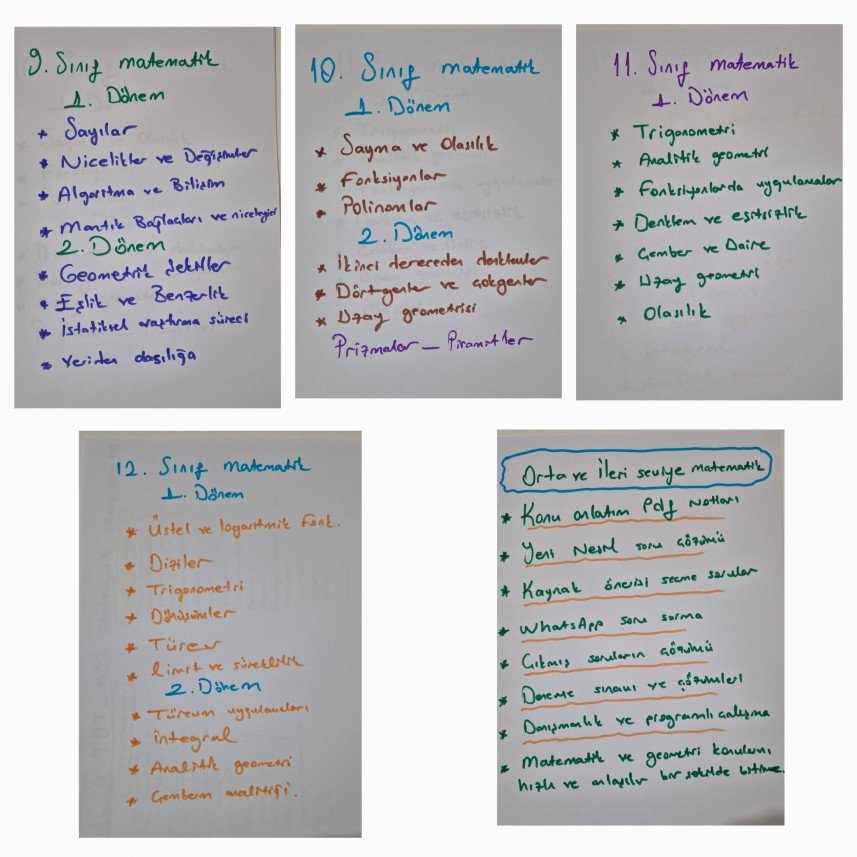 9. Sınıf matematik
1. Dönem
* Sayılar
* Nicelikler ve Değişimler
* Algoritma ve Bilişim
* Mantık Bağlaçları ve niceleyici
2. Dönem
* Geometrik şekiller
* Eşlik ve Benzerlik
* İstatiksel araştırma süreci
* Veriden olasılığa
10. Sınıf matematik
1. Dönem
* Sayma ve Olasılık
* Fonksiyonlar
* Polinomlar
2. Dönem
* İkinci dereceden denklemler
* Dörtgenler ve çokgenler
* Uzay geometrisi
Prizmalar - Piramitler
11. Sınıf matematik
1. Dönem
* Trigonometri
* Analitik geometri
* Fonksiyonlarda uygulamalar
* Denklem ve eşitsizlik
* Çember ve Daire
* Uzay geometri
* Olasılık
12. Sınıf matematik
1. Dönem
* Üstel ve logaritmik Fonk.
* Diziler
* Trigonometri
* Dönüşümler
* Türev
* limit ve süreklilik
2. Dönem
* Türevin uygulamaları
* integral
* Analitik geometri
* Çemberin analitiği.
Orta ve İleri seviye matematik
* Konu anlatım Pdf Notları
* Yeni Nesil soru çözümü
* Kaynak önerisi seçme sorular
* WhatsApp soru sorma
* Çıkmış soruların çözümü
* Deneme sınavı ve çözümleri
* Danışmanlık ve programlı çalışma
* Matematik ve geometri konularını
hızlı ve anlaşılır bir şekilde bitirme.